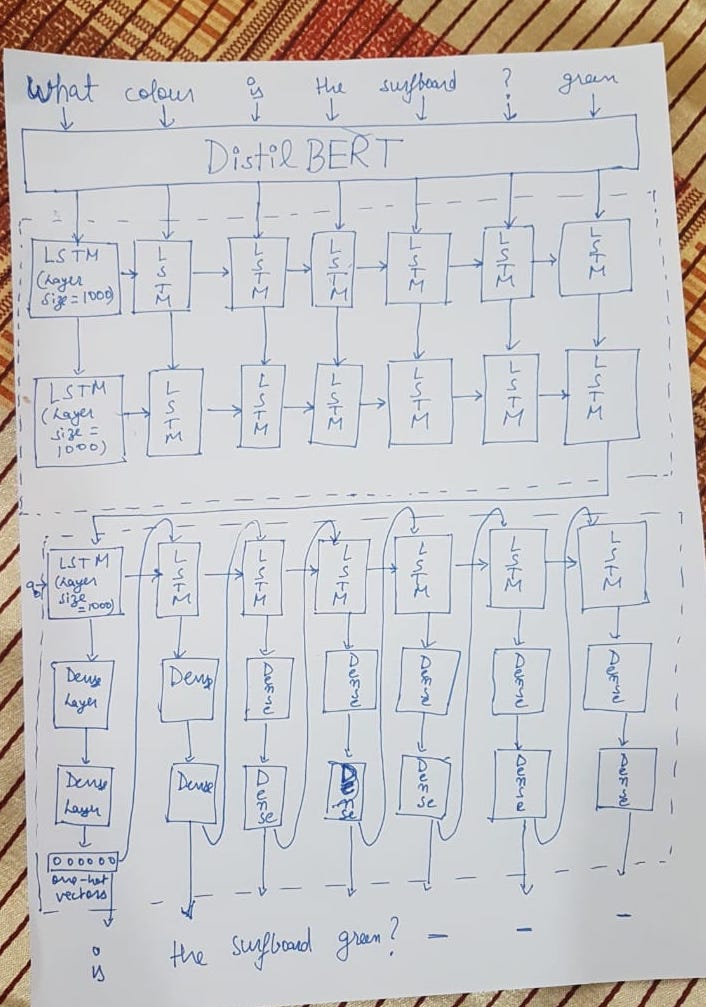 What colour is the surfboard ? green
DistilBERT
LSTM (Layer size=1000) LSTM LSTM LSTM LSTM LSTM LSTM
LSTM (Layer size = 1000) LSTM LSTM LSTM LSTM LSTM LSTM
a0 LSTM (Layer size =1000) LSTM LSTM LSTM LSTM LSTM LSTM
Dense Layer Dense Dense Dense Dense Dense Dense
Dense Layer Dense Dense Dense Dense Dense Dense
000000
one-hot
vectors
is the surfboard green? – – –